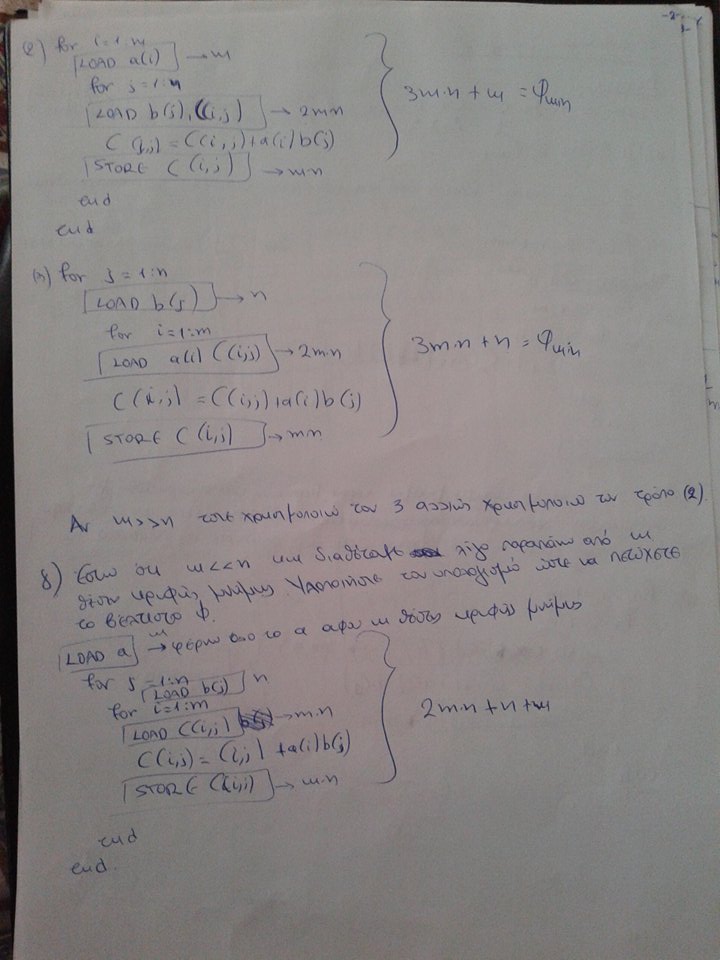 -2-
2) for i=1:m
LOAD a(i) → m
for j=1:n
LOAD b(j), C(i,j) → 2mn
C(i,j) = C(i,j)+a(i)b(j)
STORE C(i,j) → m·n
end
end
3m·n + m = φmin
3) for j=1:n
LOAD b(j) → n
for i=1:m
LOAD a(i) C(i,j) → 2m·n
C(i,j) = C(i,j)+a(i)b(j)
STORE C(i,j) → m·n
3m·n + n = φmin
Αν m>>n τοτε χρησιμοποιώ τον 3 αλλιώς χρησιμοποιώ τον τρόπο (2).
γ) Έστω ότι m<<n και διαθέταμε λίγο παραπάνω από m
θέσεις κρυφής μνήμης. Υλοποιήστε τον υπολογισμό ώστε να πετύχετε
το βέλτιστο φ.
LOAD a m → φέρνω όλο το a αφού m θέσεις κρυφής μνήμης
for j=1:n
LOAD b(j) n
for i=1:m
LOAD C(i,j) → m·n
C(i,j) = C(i,j) + a(i)b(j)
STORE C(i,j) → m·n
2m·n + n + m
end
end.